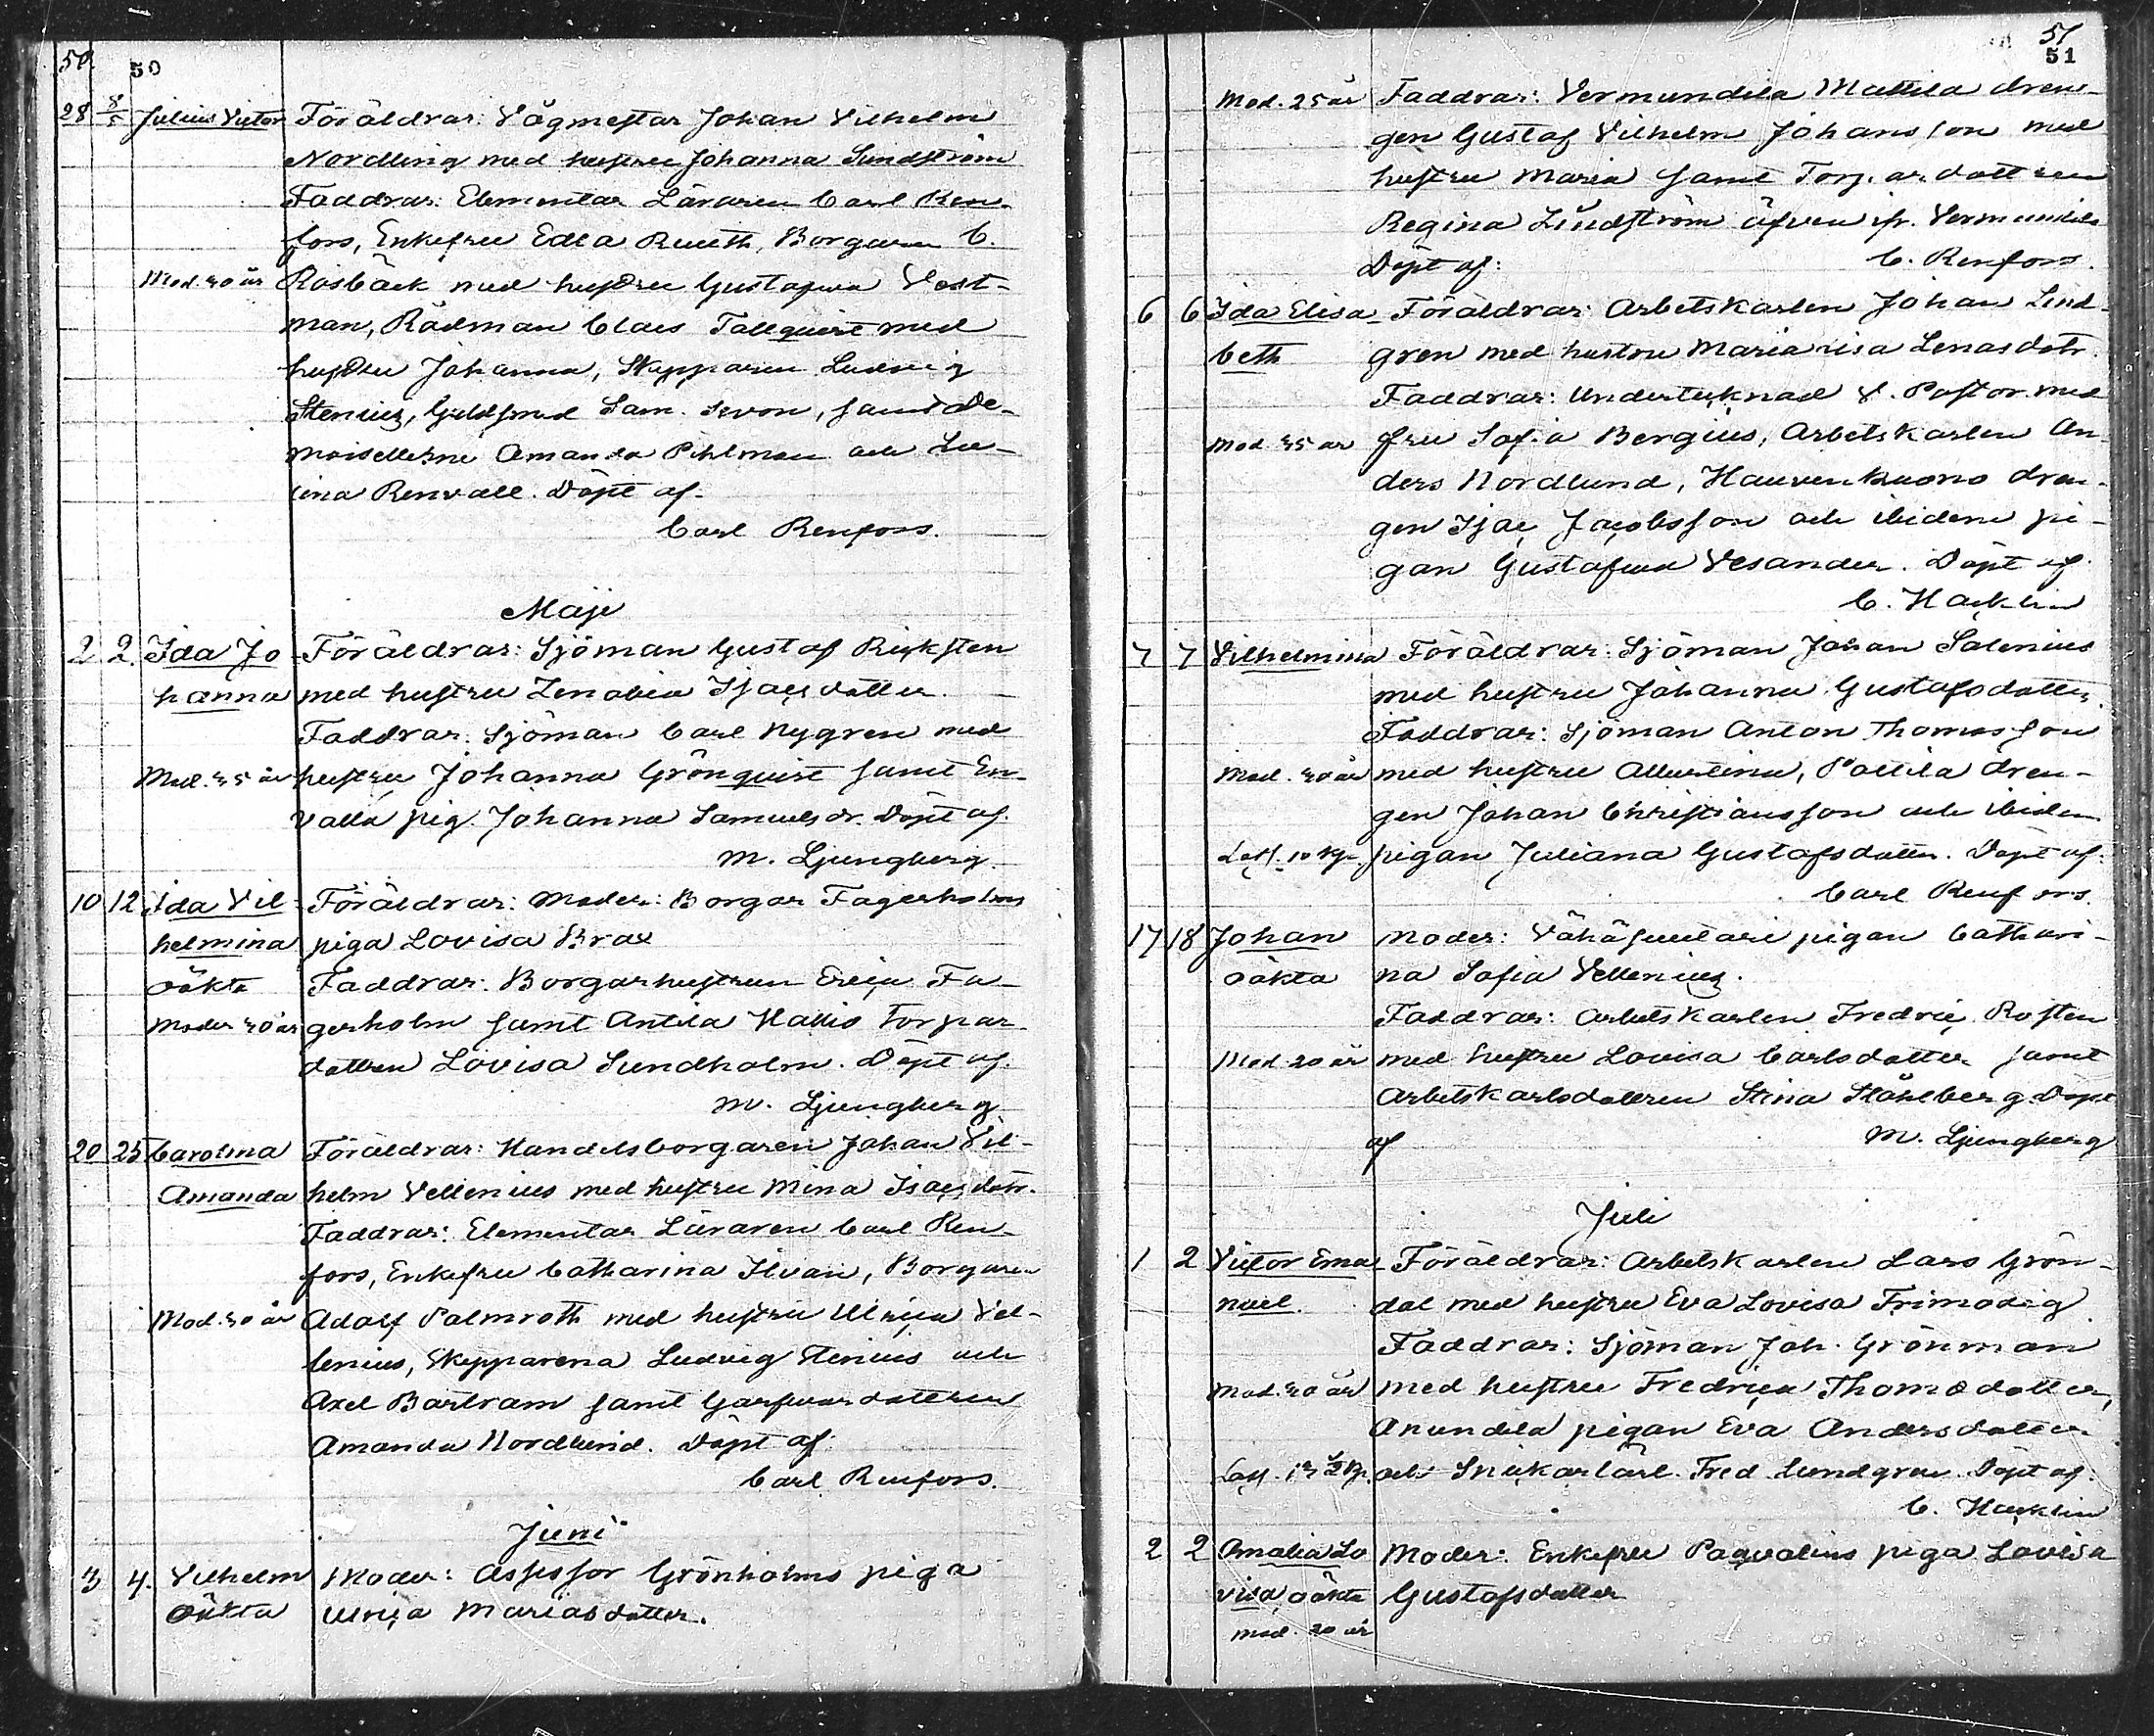 50. 50
28 8/5 Julius Victor Föräldrar: Vågmestar Johan Vilhelm
Nordling med hustru Johanna Sundström
Faddrar: Elementar Läraren Carl Ren-
fors, Enkefru Edla Rueth, Borgaren C.
Mod. 30 år Rosbäck med hustru Gustafva Vest-
man, Rådman Claes Tallquist med
hustru Johanna, Skepparen Ludvig
Stenius, Guldsmed Sam. Levon, samt De-
moisellerne Amanda Pihlman och Lo-
vina Renvall. Döpt af
Carl Renfors.
Maji
2 2. Ida Jo- Föräldrar: Sjöman Gustaf Rinksten
hanna med hustru Zenobia Isacsdotter.
Faddrar: Sjöman Carl Nygren med
Mod. 35 år hustru Johanna Grönquist samt En-
valla pig. Johanna Samuelsdr. Döpt af.
M. Ljungberg.
10 12 Ida Vil- Föräldrar: Moder: Borgar Fagerholms
helmina piga Lovisa Brax
oäkta Faddrar: Borgarhustrun Erica Fa-
Moder 30 år gerholm samt Antila Hallis Torpar-
dottren Lovisa Sundholm. Döpt af.
M. Ljungberg
20 25 Carolina Föräldrar: Handelsborgaren Johan Vil-
Amanda helm Vellenius med hustru Mina Isacsdotr.
Faddrar: Elementar Läraren Carl Ren-
fors, Enkefru Catharina Ilvan, Borgaren
Mod. 30 år Adolf Palmroth med hustru Ulrica Vel-
lenius, Skepparena Ludvig Stenius och
Axel Bartram samt Garfvar dottren
Amanda Nordlund. Döpt af
Carl Renfors.
Juni
3 4. Vilhelm Moder: Assessor Grönholms piga
Oäkta Ulrica Mariasdotter.
51 51
Mod. 25 år Faddrar: Vermundila Mattila dren-
gen Gustaf Vilhelm Johansson med
hustru Maria samt Torparedottren
Regina Lindström äfven ifr. Vermundila
Döpt af: C. Renfors.
6 6 Ida Elisa- Föräldrar: Arbetskarlen Johan Lind-
beth gren med hustru Maria Lisa Lenasdotr.
Faddrar: Undertecknad V. Pastor med
Mod. 35 år fru Sofia Bergius, Arbetskarlen An-
ders Nordlund, Hauvenkuono dren-
gen Isac Jacobsson och ibidem pi-
gan Gustafva Vesander. Döpt af
C. Hacklin
7 7 Vilhelmina Föräldrar: Sjöman Johan Salenius
med hustru Johanna Gustafsdotter.
Faddrar: Sjöman Anton Thomasson
Mod. 30 år med hustru Albertina, Pattila dren-
gen Johan Christiansson och ibidem
Las. 10 kp. pigan Juliana Gustafsdotter. Döpt af:
Carl Renfors.
17 18 Johan Moder: Vähäjuulari pigan Cathari-
oäkta na Sofia Vellenius.
Faddrar: Arbetskarlen Fredric Rosten
Mod 20 år med hustru Lovisa Carlsdotter samt
Arbetskarlsdottren Stina Ståhlberg. Döpt
af M. Ljungberg
Juli
1 2 Victor Ema- Föräldrar: Arbetskarlen Lars Grön-
nuel. dal med hustru Eva Lovisa Frimodig
Faddrar: Sjöman Joh. Grönman
Mod. 30 år med hustru Fredrica Thomædotter,
Anundila pigan Eva Andersdotter
och Snickarlärl. Fred. Lundgren. Döpt af.
C. Hacklin
2 2 Amalia Lo- Moder: Enkefru Paqvalins piga Lovisa
visa, oäkta Gustafsdotter
mod. 20 år